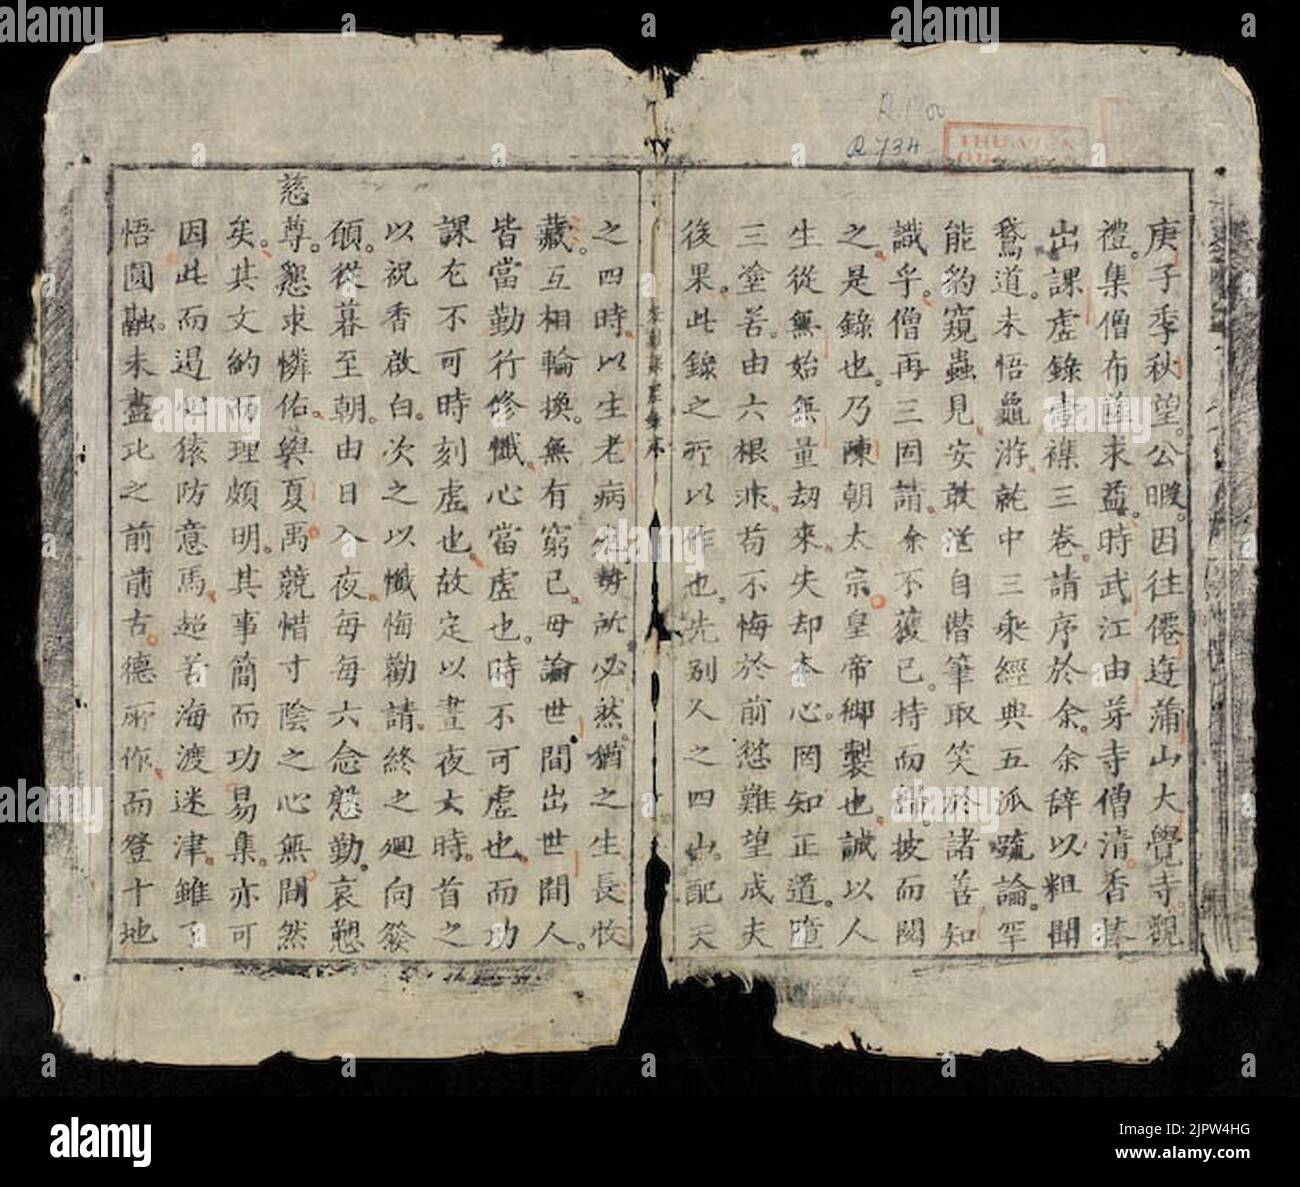 R.1400
R.734
THU VIEN
庚子季秋望公暇因往僊遊蒲山大覺寺觀
禮集僧布薩求益時武江由芽寺僧清香棒
出課虚錄壹襍三卷請序於余余辞以粗聞
鵞道未悟龜游乾中三乘經典五派疏論罕
能豹窺蟲見安敢逆自階筆取笑於諸善知
識乎僧再三固請余不獲已持而繙披而閱
之是錄也乃陳朝太宗皇帝御製也誠以人
生從無始無量刼來失却本心罔知正道墮
三塗苦由六根业苟不悔於前愆難望成夫
後果此錄之所以作也先别久之四山配天
之四時以生老病死勢所必然猶之生長收
藏互相輪換無有窮已毋論世間出世間人
皆當勤行修懺心當虚也時不可虚也而功
課尤不可時刻虚也故定以晝夜六時首之
以祝香啟白次之以懺悔勸請終之廻向發
願從暮至朝由日入夜每每六念慇勤哀懇
慈尊懇求憐佑與夏禹競惜寸陰之心無間然
矣其文約而理頗明其事簡而功易集亦可
因此而遏心猿防意馬超苦海渡迷津雖了
悟圓融未盡比之前前古德所作而登十地
alamy
Image ID: 2JPW4HG
www.alamy.com